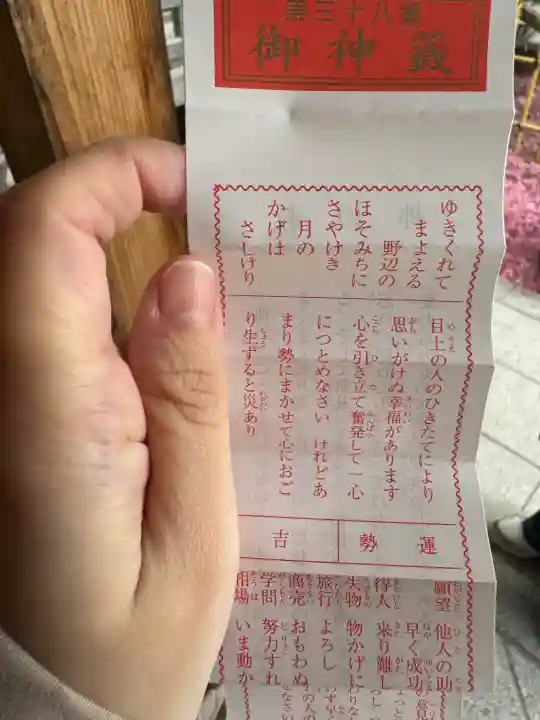 第三十八番
御神籤
ゆきくれて
まよえる
野辺の
ほそみちに
さやけき
月の
かげは
さしけり
目上の人のひきたてにより
思いがけぬ幸福があります
心を引き立て奮発して一心
につとめなさい けれどあ
まり勢にまかせて心におご
り生ずると災あり
運勢
吉
願望 他人の助
早く成功
待人 来り難し
失物 物かげに
旅行 よろし
商売 おもわぬ
学問 努力すれ
相場 いま動か